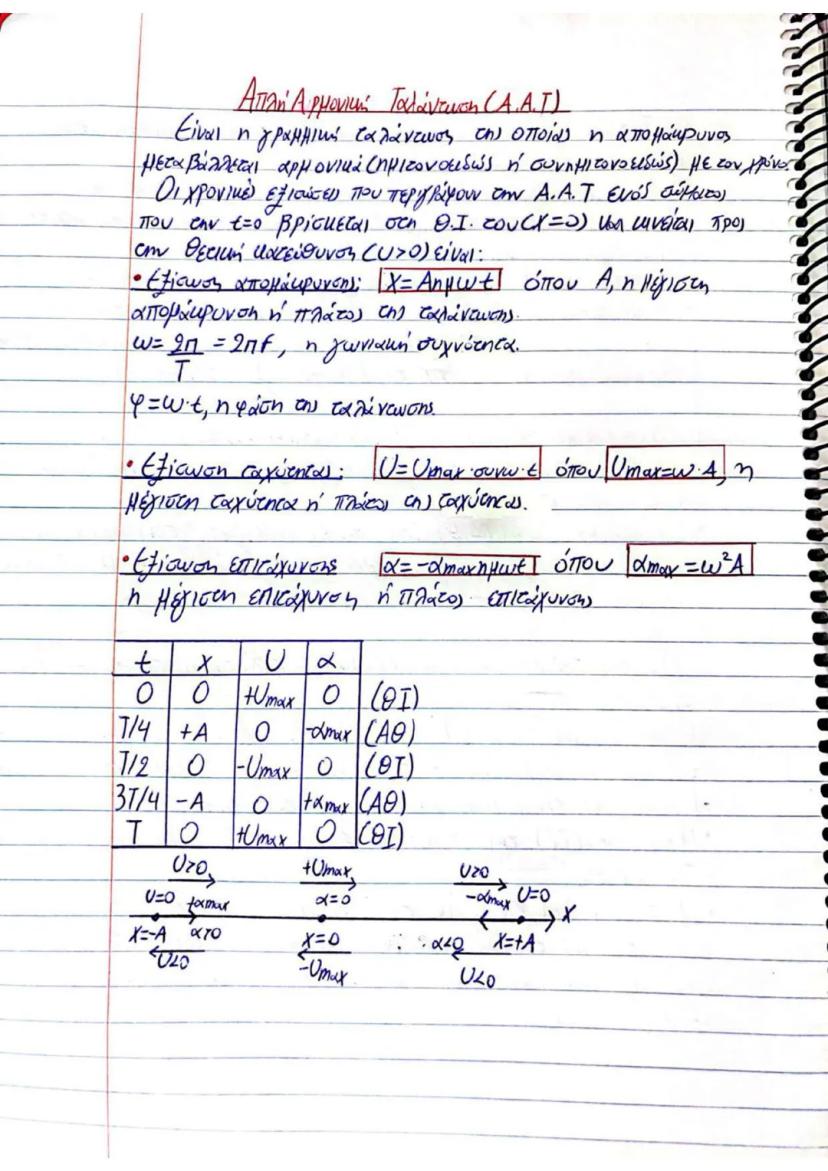 Απλή Αρμονική Ταλάντωση (Α.Α.Τ)
Είναι η γραμμική ταλάντωση της οποίας η απομάκρυνση
μεταβάλλεται αρμονικά (ημιτονοειδώς ή συνημιτονοειδώς) με τον χρόνο
Οι χρονικές εξισώσεις που περιγράφουν την Α.Α.Τ ενός σώματος
που την t=0 βρίσκεται στη Θ.Ι. του (x=0) και κινείται προς
την θετική κατεύθυνση (υ>0) είναι:
• Εξίσωση απομάκρυνσης: x=Αημωt όπου Α, η μέγιστη
απομάκρυνση ή πλάτος της ταλάντωσης.
ω= 2π/T = 2πf, η γωνιακή συχνότητα.
φ=ω·t, η φάση της ταλάντωσης.
• Εξίσωση ταχύτητας: υ=υmax·συνω·t όπου υmax=ω·Α, η
μέγιστη ταχύτητα ή πλάτος της ταχύτητας.
• Εξίσωση επιτάχυνσης α=-αmaxημωt όπου αmax=ω²Α
η μέγιστη επιτάχυνση ή πλάτος επιτάχυνσης
t x υ α
0 0 +υmax 0 (ΘΙ)
T/4 +A 0 -αmax (ΑΘ)
T/2 0 -υmax 0 (ΘΙ)
3T/4 -A 0 +αmax (ΑΘ)
T 0 +υmax 0 (ΘΙ)
υ>0 +υmax υ>0
υ=0 +αmax α=0 -αmax υ=0
x
x=-A α>0 x=0 α<0 x=+A
υ<0 -υmax υ<0